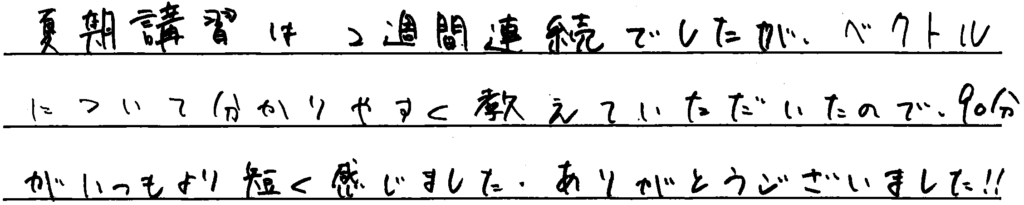 夏期講習は2週間連続でしたが、ベクトル
について分かりやすく教えていただいたので、90分
がいつもより短く感じました。ありがとうございました!!